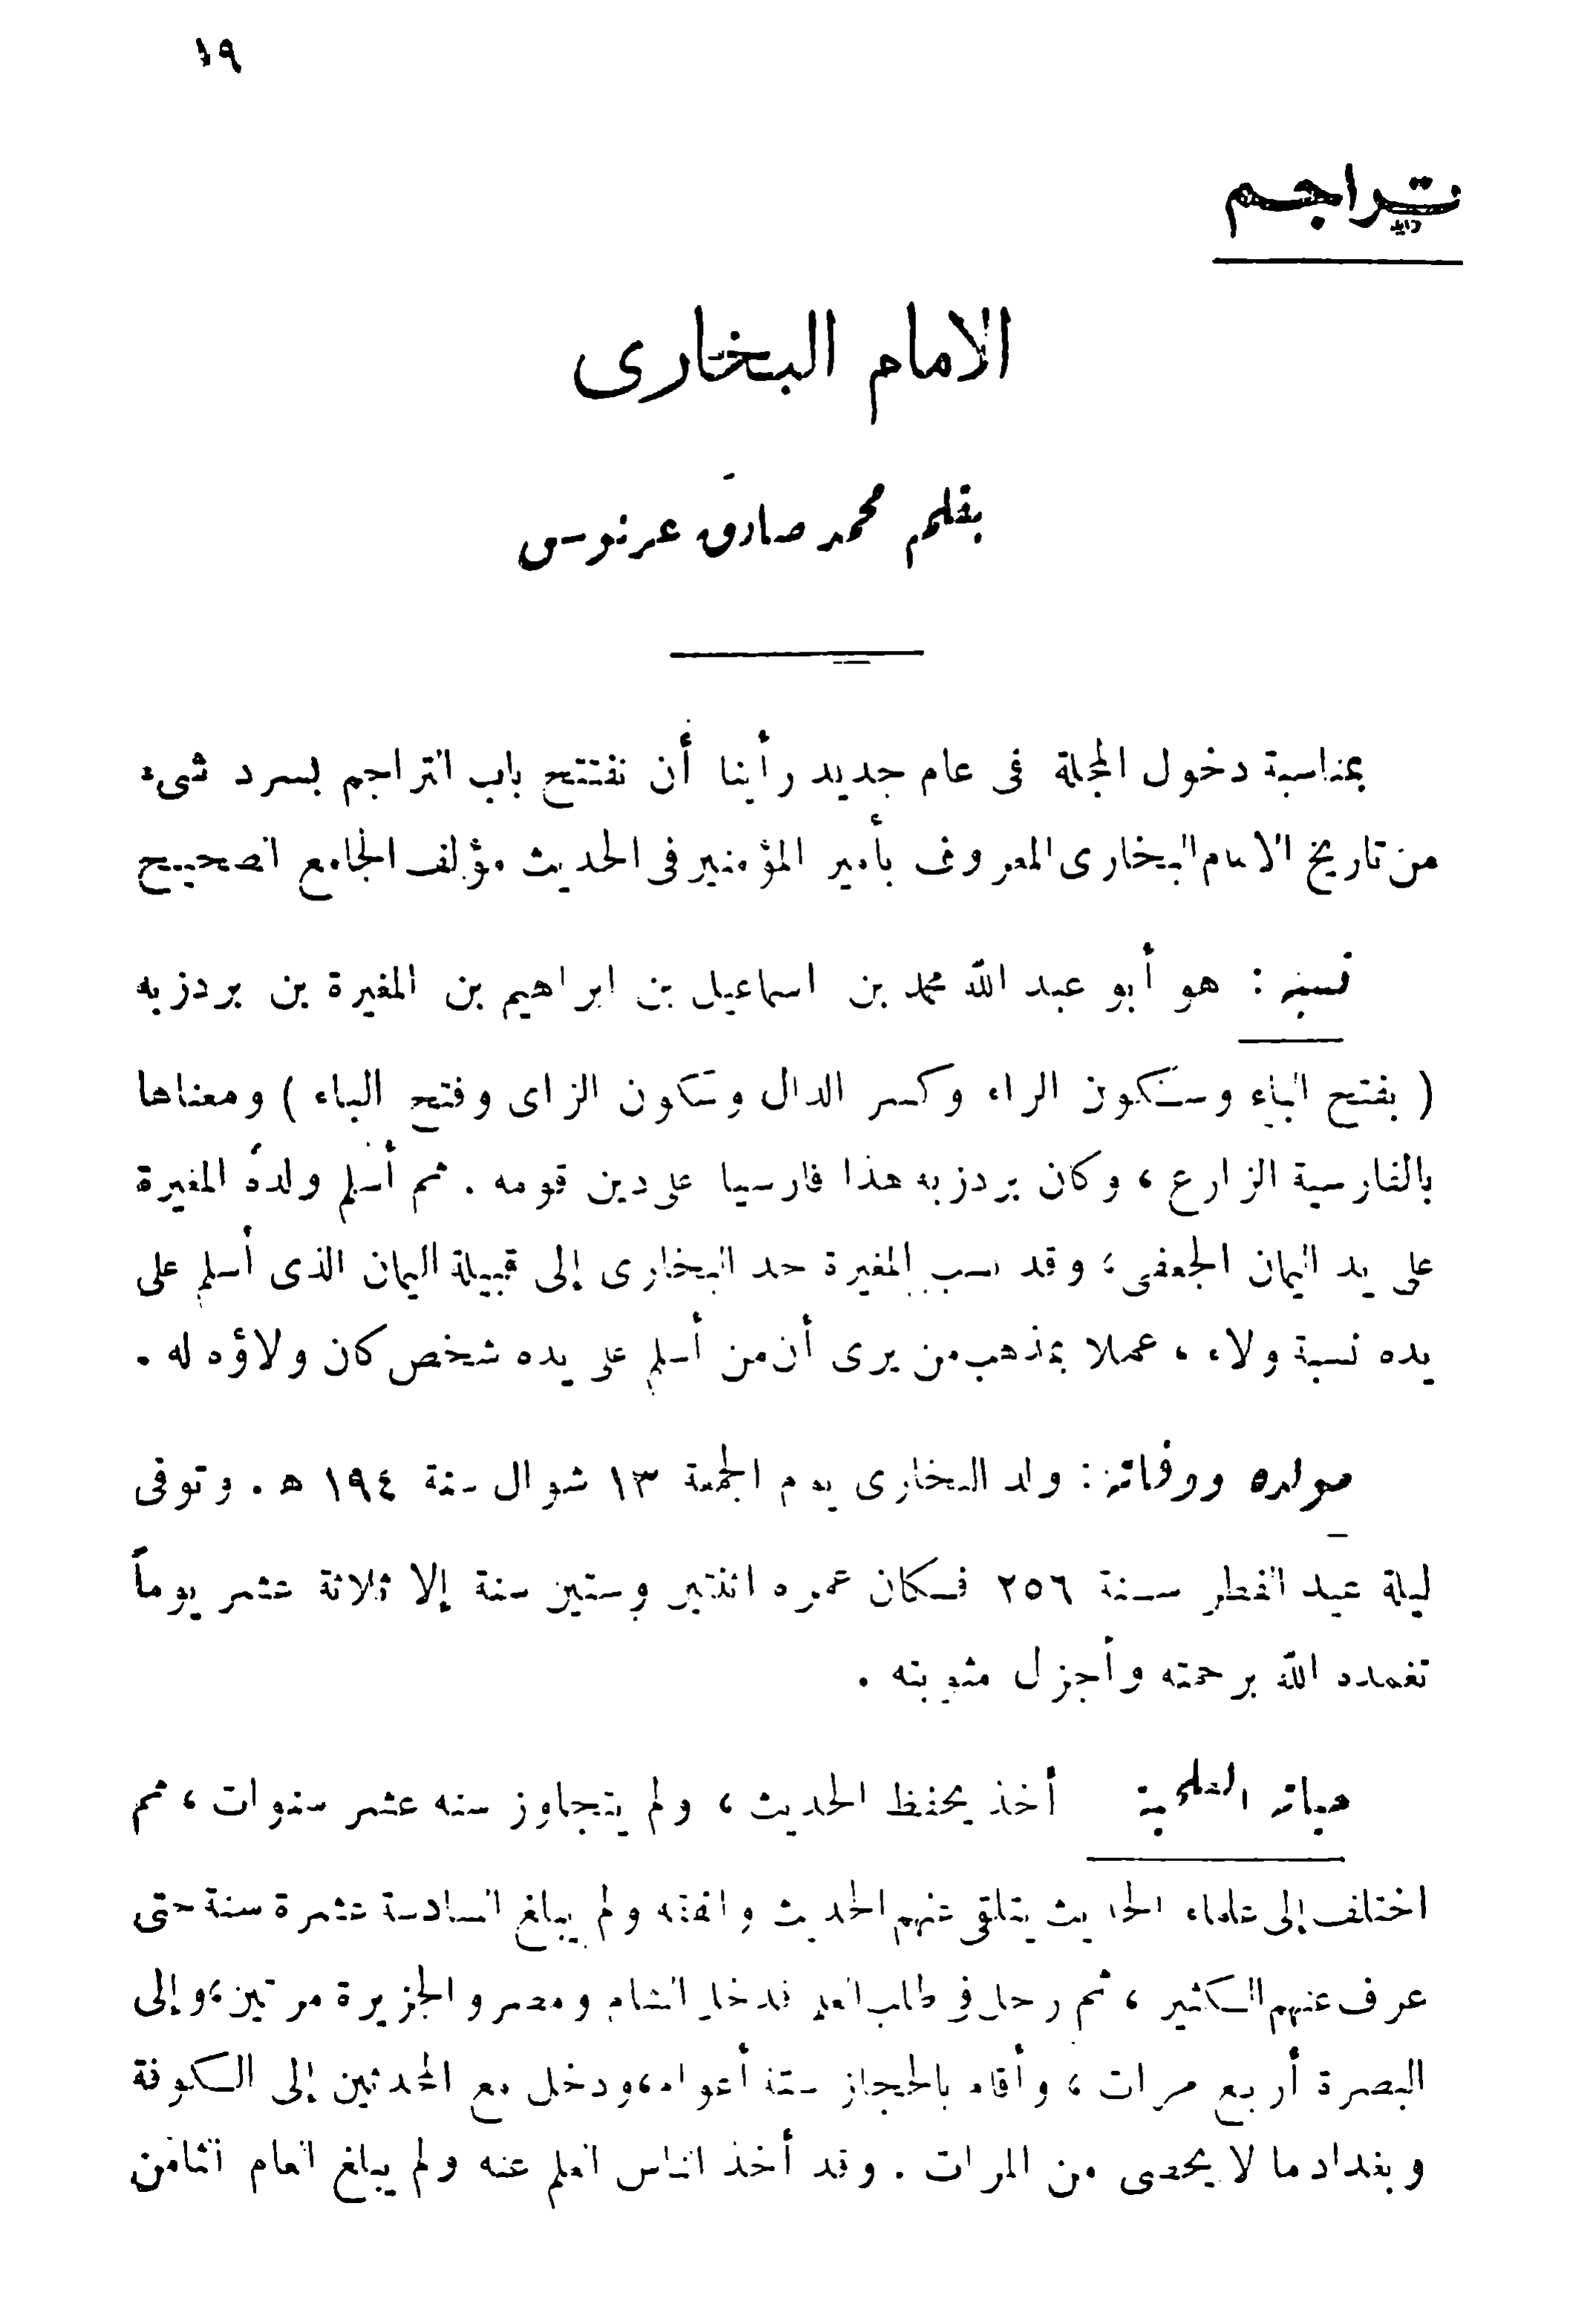 ١٩
تراجم
الامام البخارى
بقلم محمد صادق عرنوس
بمناسبة دخول المجلة فى عام جديد رأينا أن نفتتح باب التراجم بسرد شىء
من تاريخ الامام البخارى المعروف بأمير المؤمنين فى الحديث مؤلف الجامع الصحيح
نسبه : هو أبو عبد الله محمد بن اسماعيل بن ابراهيم بن المغيرة بن بردزبه
( بفتح الباء وسكون الراء وكسر الدال وسكون الزاى وفتح الباء ) ومعناها
بالفارسية الزارع ، وكان بردزبه هذا فارسيا على دين قومه . ثم أسلم ولده المغيرة
على يد اليمان الجعفى ، وقد نسب المغيرة جد البخارى إلى قبيلة اليمان الذى أسلم على
يده نسبة ولاء ، عملا بمذهب من يرى أن من أسلم على يده شخص كان ولاؤه له .
مولده ووفاته : ولد البخارى يوم الجمعة ١٣ شوال سنة ١٩٤ ه . وتوفى
ليلة عيد الفطر سنة ٢٥٦ فكان عمره اثنتين وستين سنة إلا ثلاثة عشر يوماً
تغمده الله برحمته وأجزل مثوبته .
حياته العلمية أخذ يحفظ الحديث ، ولم يتجاوز سنه عشر سنوات ، ثم
اختلف إلى علماء الحديث يتلقى عنهم الحديث والفقه ولم يبلغ السادسة عشرة سنة حتى
عرف عنهم الكثير ، ثم رحل فى طلب العلم فدخل الشام ومصر والجزيرة مرتين ، وإلى
البصرة أربع مرات ، وأقام بالحجاز ستة أعوام ، ودخل مع المحدثين إلى الكوفة
وبغداد ما لا يحصى من المرات . وقد أخذ الناس العلم عنه ولم يبلغ العام الثامن